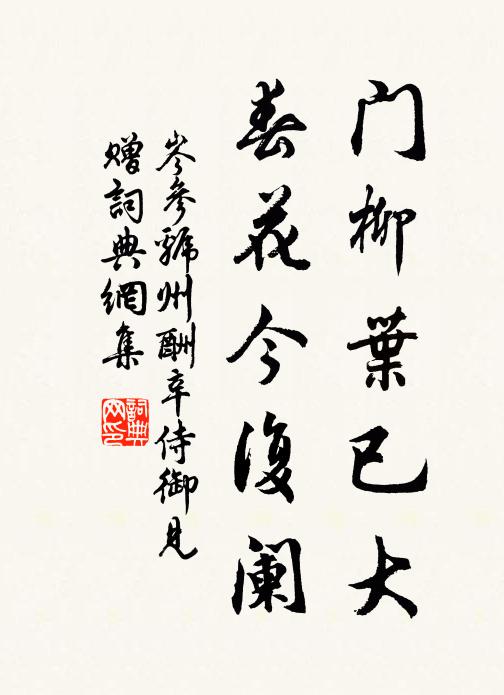 门柳葉已大
春花今復阑
岑参虢州酬辛侍御见
赠詞典網集
詞典网印